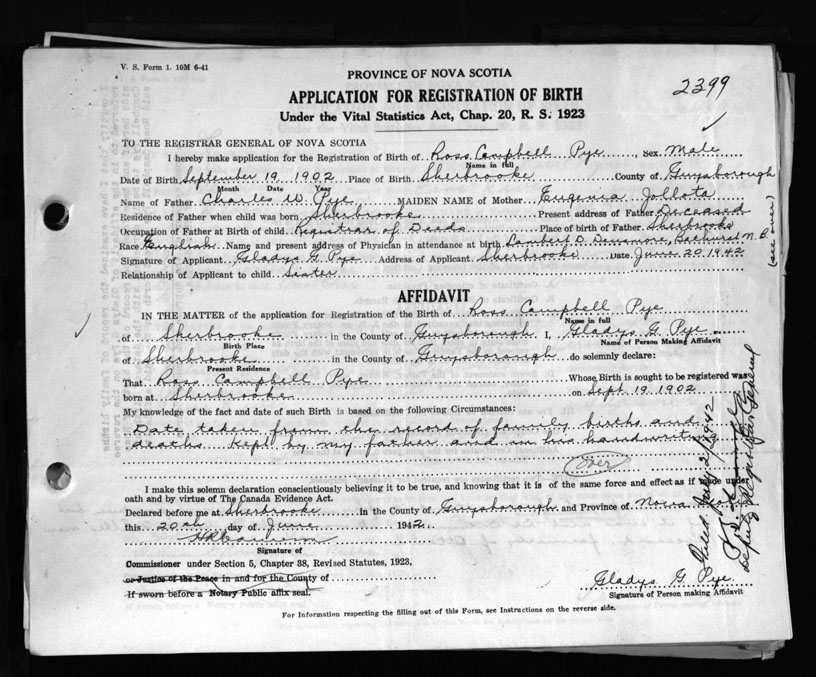 V. S. Form 1. 10M 6-41
2399
PROVINCE OF NOVA SCOTIA
APPLICATION FOR REGISTRATION OF BIRTH
Under the Vital Statistics Act, Chap. 20, R. S. 1923
TO THE REGISTRAR GENERAL OF NOVA SCOTIA
I hereby make application for the Registration of Birth of Ross Campbell Pye, Sex Male
Name in full
Date of Birth September 19, 1902 Place of Birth Sherbrooke County of Guysborough
Month Date Year
Name of Father Charles W. Pye MAIDEN NAME of Mother Eugenia Jollota
Residence of Father when child was born Sherbrooke Present address of Father Deceased
Occupation of Father at Birth of child Registrar of Deeds Place of birth of Father Sherbrooke
Race English Name and present address of Physician in attendance at birth Lambert D. Densmore, Bathurst N. B.
(see over)
Signature of Applicant Gladys G. Pye Address of Applicant Sherbrooke Date June 20, 1942
Relationship of Applicant to child Sister
AFFIDAVIT
IN THE MATTER of the application for Registration of the Birth of Ross Campbell Pye
Name in full
of Sherbrooke in the County of Guysborough I, Gladys G. Pye
Birth Place Name of Person Making Affidavit
of Sherbrooke in the County of Guysborough do solemnly declare:
Present Residence
That Ross Campbell Pye Whose Birth is sought to be registered was
born at Sherbrooke on Sept 19, 1902
My knowledge of the fact and date of such Birth is based on the following Circumstances:
Date taken from the record of family births and
deaths kept by my father and in his handwriting
over
I make this solemn declaration conscientiously believing it to be true, and knowing that it is of the same force and effect as if made under
oath and by virtue of The Canada Evidence Act.
Declared before me at Sherbrooke in the County of Guysborough and Province of Nova
this 20th day of June 1942
Signature of
Commissioner under Section 5, Chapter 38, Revised Statutes, 1923,
or Justice of the Peace in and for the County of
If sworn before a Notary Public affix seal.
Gladys G. Pye
Signature of Person making Affidavit
For Information respecting the filling out of this Form, see Instructions on the reverse side.
Filed July 2/1942
Deputy Registrar General